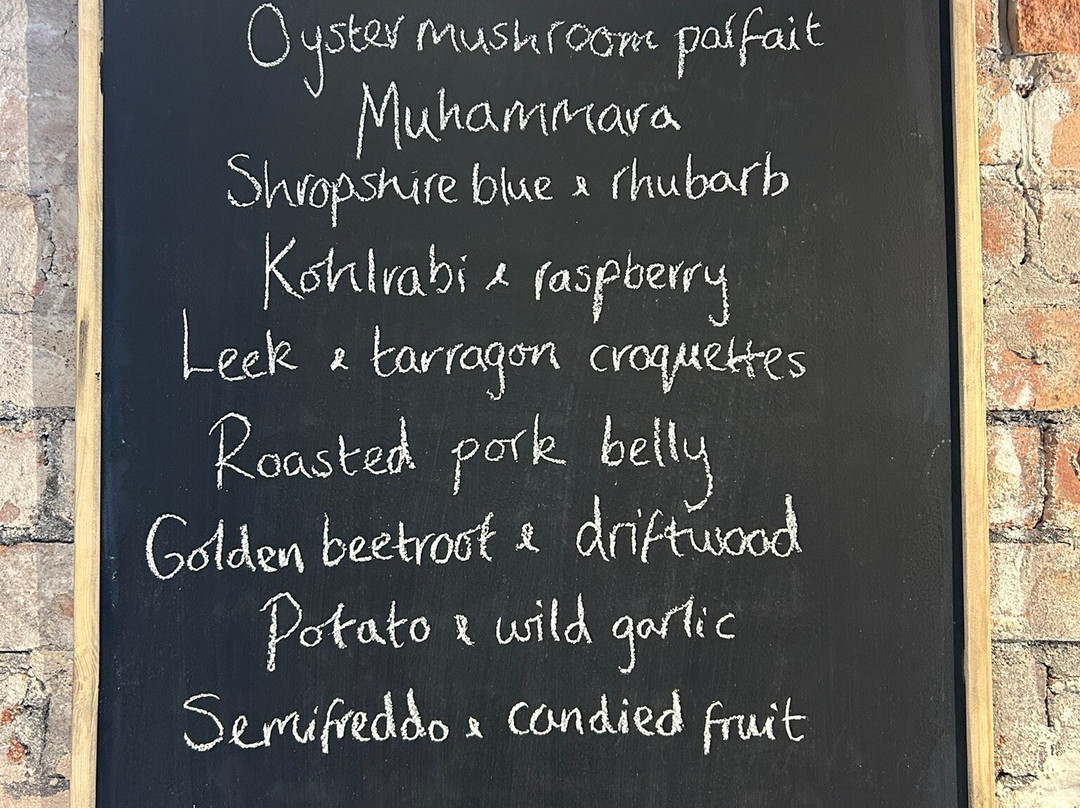 Oyster mushroom parfait
Muhammara
Shropshire blue & rhubarb
Kohlrabi & raspberry
Leek & tarragon croquettes
Roasted pork belly
Golden beetroot & driftwood
Potato & wild garlic
Semifreddo & candied fruit